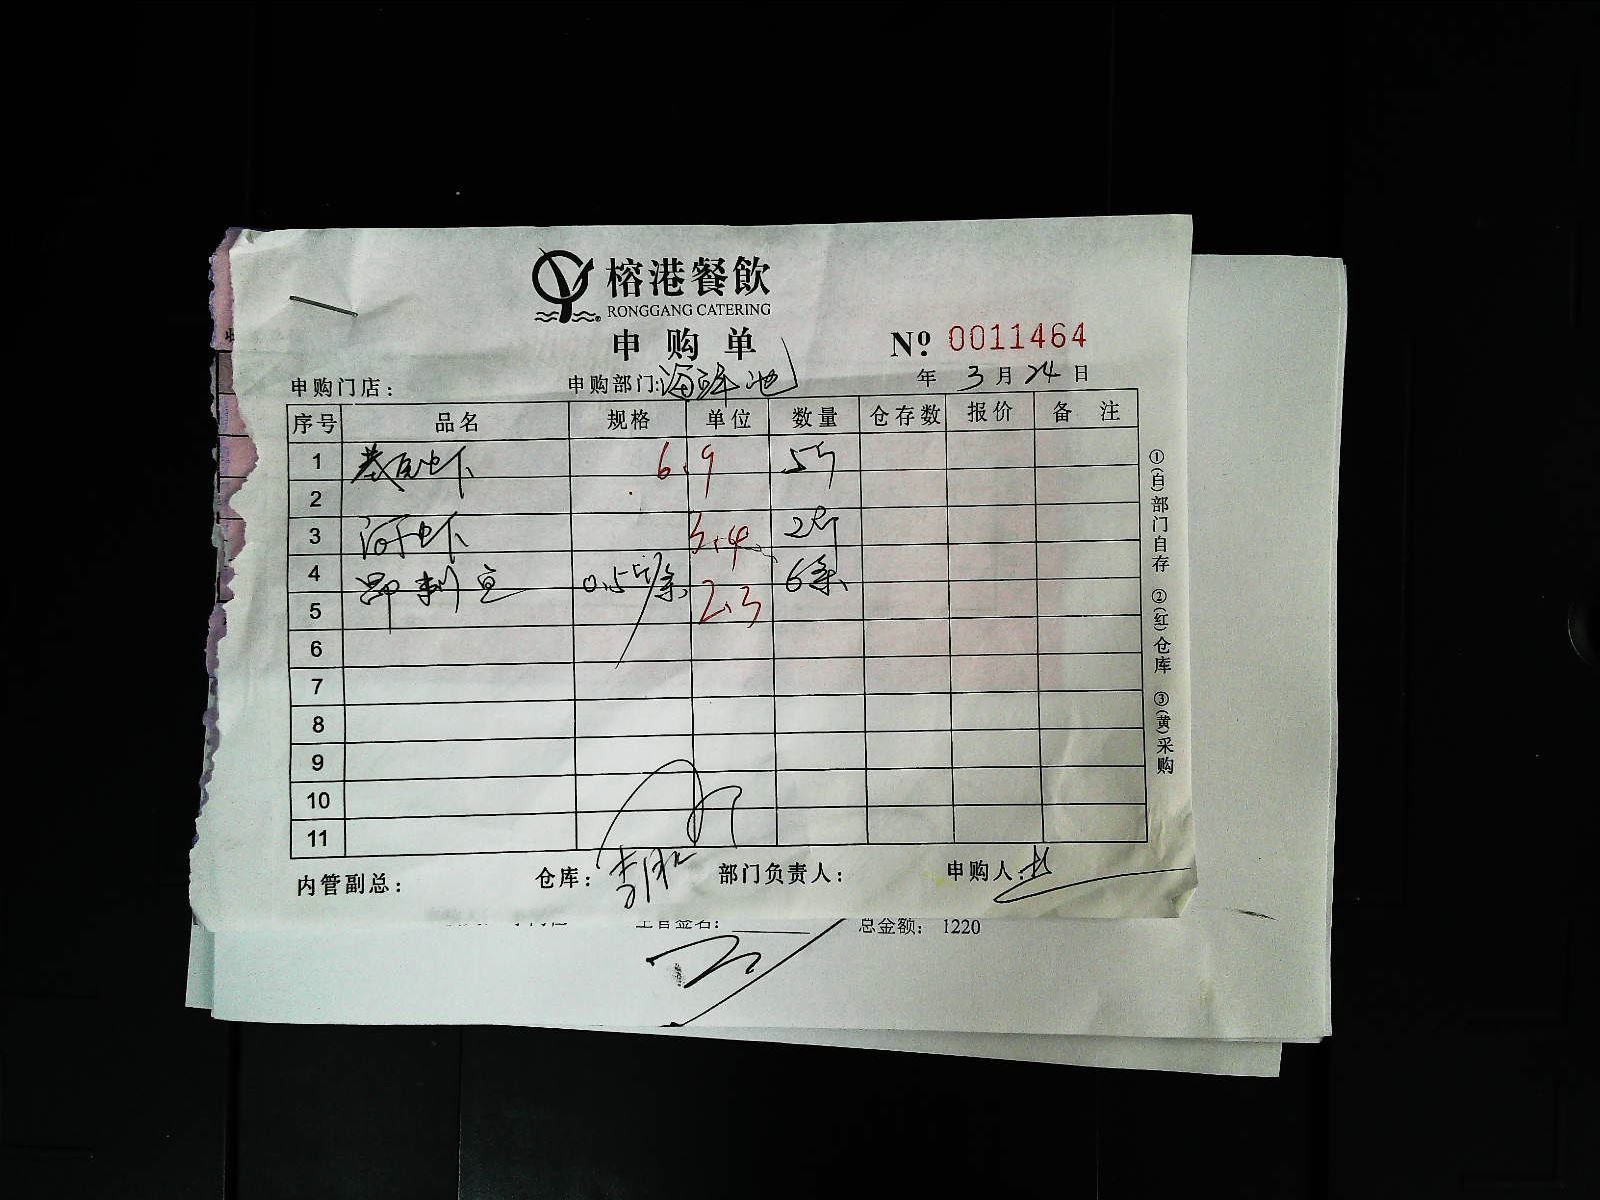 榕港餐飲
RONGGANG CATERING
申购单
No. 0011464
申购门店： 申购部门：海鲜池 年 3月24日
序号 品名 规格 单位 数量 仓存数 报价 备注
1 基尾虾 6.9 5斤
2
3 河虾 3.4 2斤
4 昂刺鱼 0.5斤/条 6条
5 2.3
6
7
8
9
10
11
内管副总： 仓库： 部门负责人： 申购人：
①(白)部门自存 ②(红)仓库 ③(黄)采购
主管签名： 总金额： 1220